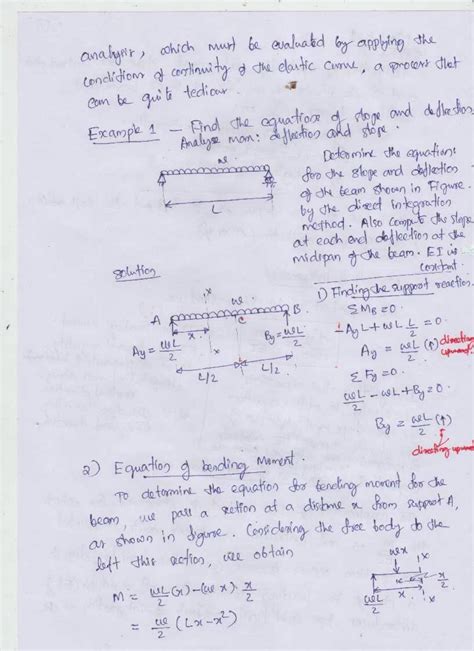 analysis, which must be evaluated by applying the
conditions of continuity of the elastic curve, a process that
can be quite tedious.
Example 1 – Find the equations of slope and deflection.
Analyse max: deflection and slope.
w
L
Determine the equations
for the slope and deflection
of the beam shown in Figure
by the direct integration
method. Also compute the slope
at each end deflection at the
midspan of the beam. EI is
constant.
Solution
x
w
A
B
C
x
x
Ay = wL/2
By = wL/2
L/2
L/2
1) Finding the support reaction
ΣMB = 0
AyL + wL L/2 = 0
Ay = wL/2 (↑) directing upwards
ΣFy = 0
wL/2 - wL + By = 0
By = wL/2 (↑)
directing upwards
2) Equation of bending Moment.
To determine the equation for bending moment for the
beam, we pass a section at a distance x from support A,
as shown in figure. Considering the free body to the
left this section, we obtain
M = wL/2 (x) - (wx) x/2
= w/2 (Lx - x²)
wx
x
x/2
x
x
wL/2